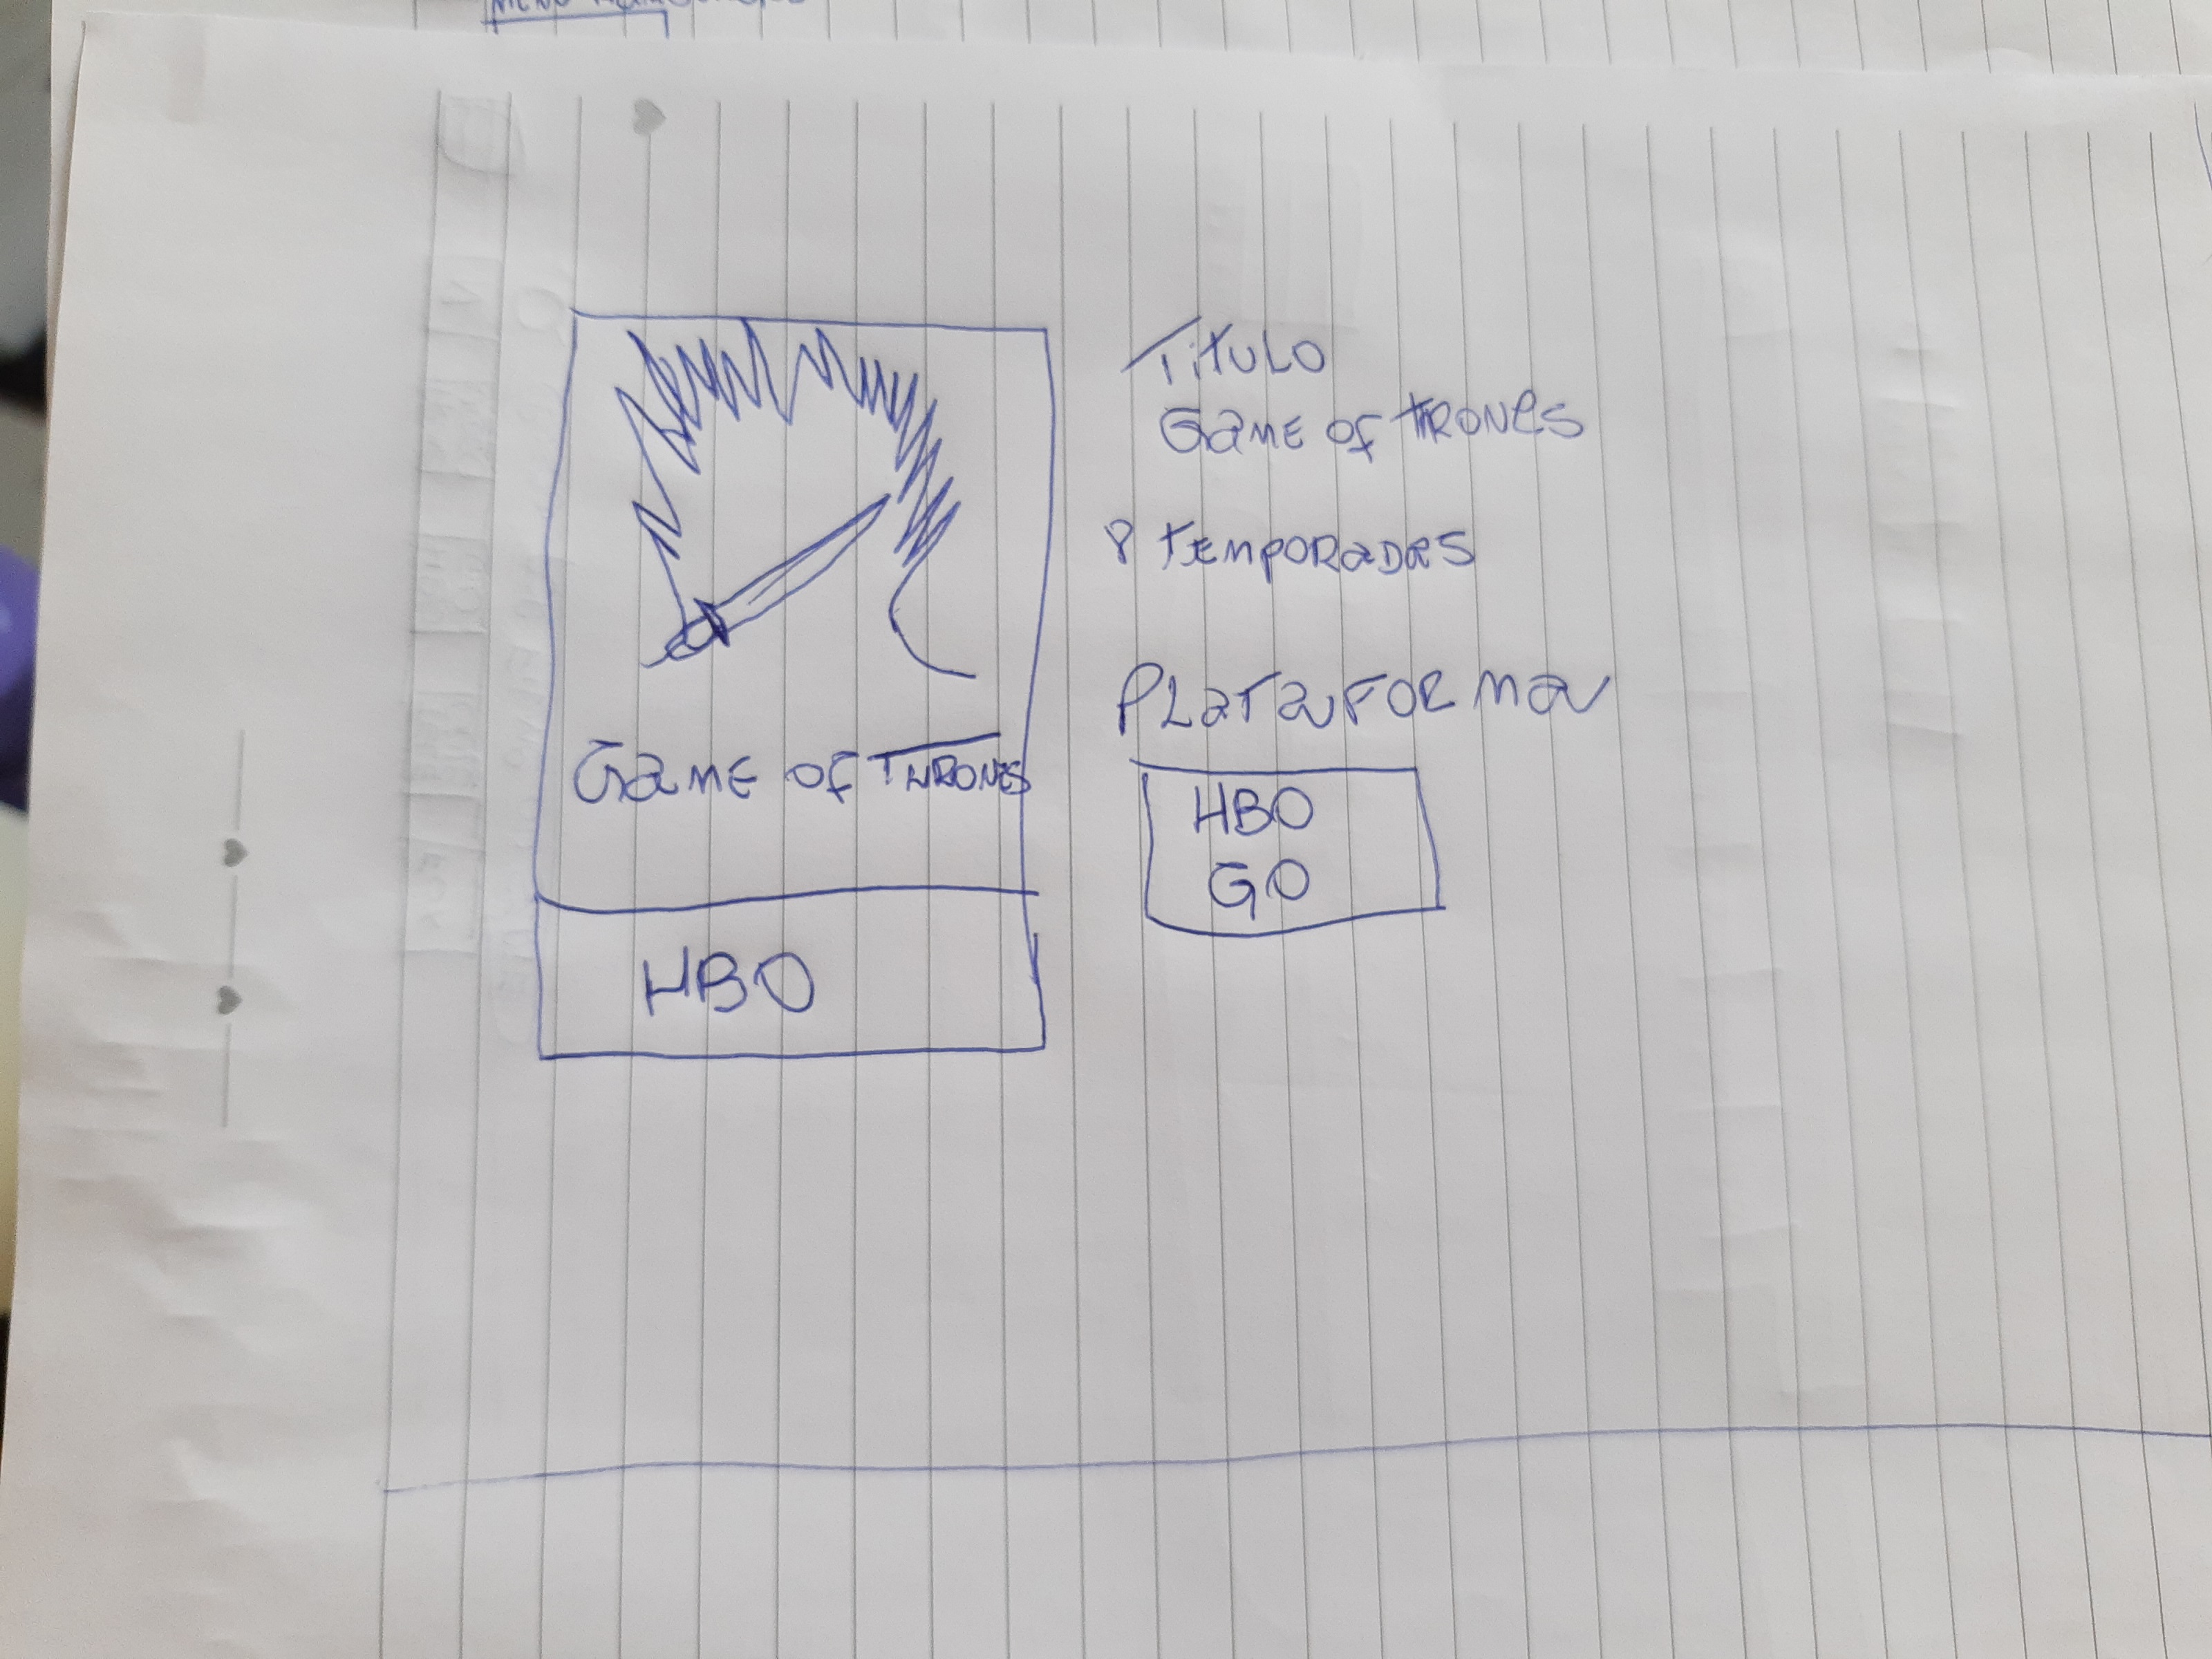 Game of Thrones
HBO
Titulo
Game of Trones
8 temporadas
Plataforma
HBO
GO